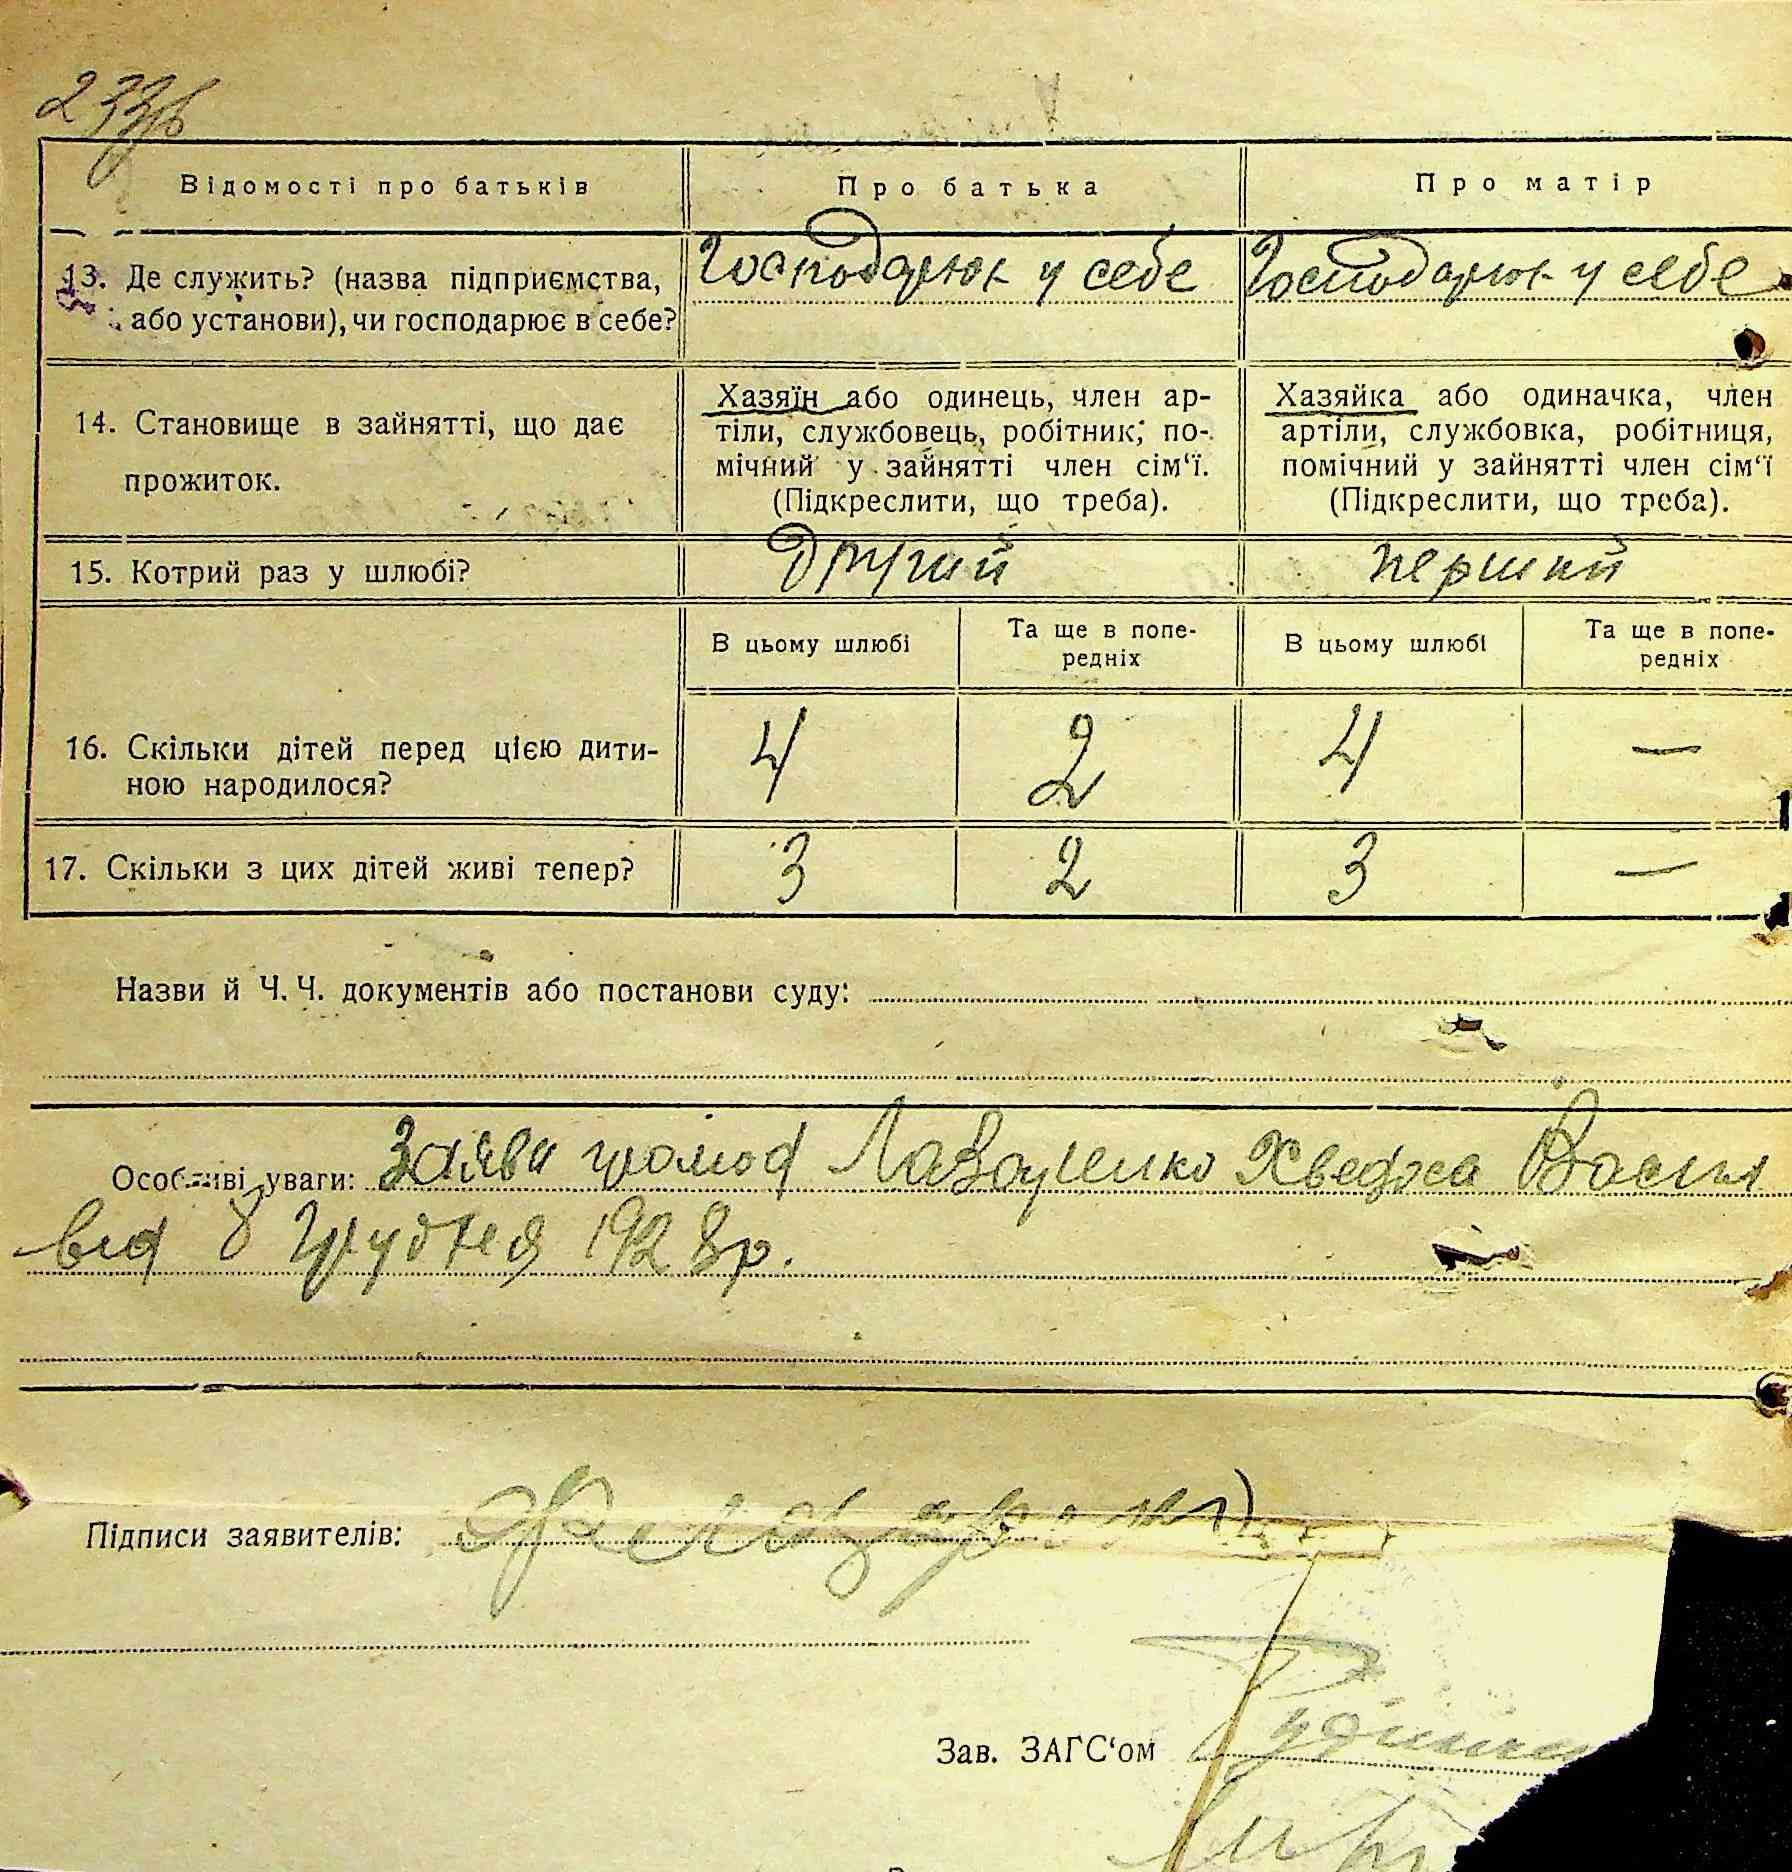 233
Відомості про батьків Про батька Про матір
13. Де служить? (назва підприємства, або установи), чи господарює в себе? Господарюк у себе Господарюк у себе
14. Становище в зайнятті, що дає прожиток.
Хазяїн або одинець, член ар-
тіли, службовець, робітник; по-
мічний у зайнятті член сім‘ї.
(Підкреслити, що треба).
Хазяйка або одиначка, член
артіли, службовка, робітниця,
помічний у зайнятті член сім‘ї
(Підкреслити, що треба).
15. Котрий раз у шлюбі? Другий перший
В цьому шлюбі Та ще в попе-
редніх В цьому шлюбі Та ще в попе-
редніх
16. Скільки дітей перед цією дити-
ною народилося? 4 2 4 —
17. Скільки з цих дітей живі тепер? 3 2 3 —
Назви й Ч. Ч. документів або постанови суду:
Особливі уваги: Заява громад Лазаренко Хведоса Васил
від 8 Грудня 1928 р.
Підписи заявителів:
Зав. ЗАГС‘ом